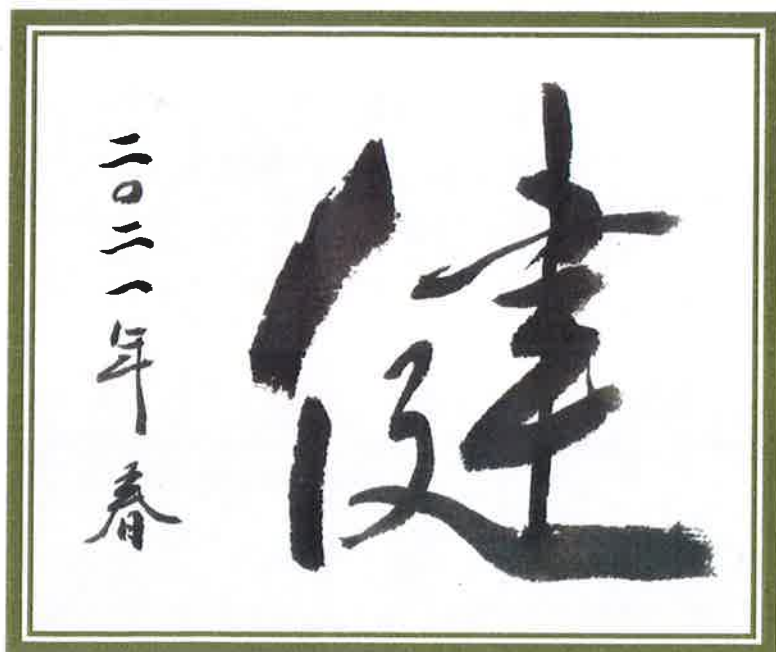 健
二〇二一年春